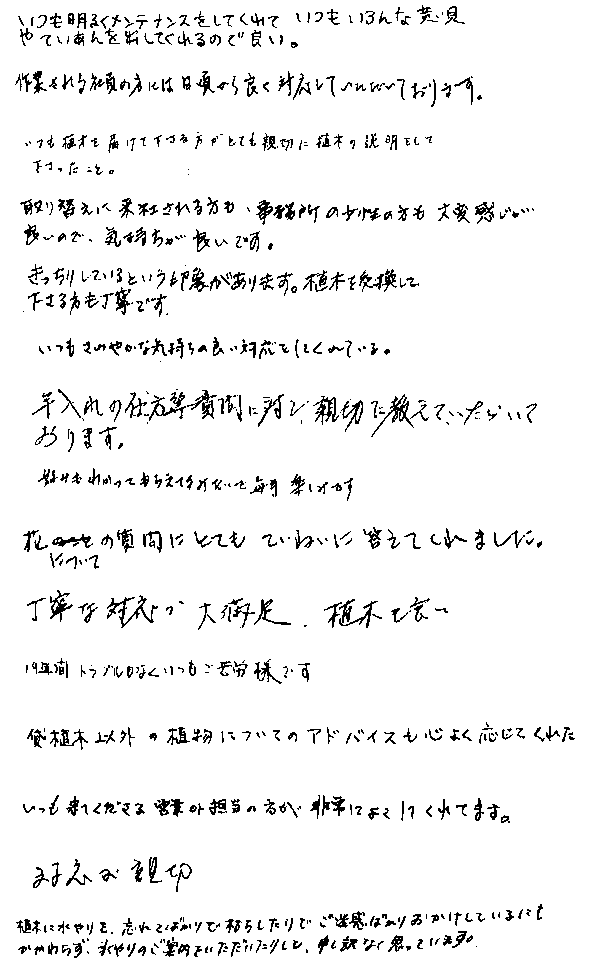 いつも明るくメンテナンスをしてくれて いつもいろんな意見
やていあんを出してくれるので良い。
作業される社員の方には日頃から良く対応していただいております。
いつも植木を届けて下さる方がとても親切に植木の説明をして
下さったこと。
取り替えに来社される方も、事務所の女性の方も大変感じが
良いので、気持ちが良いです。
きっちりしているという印象があります。植木を交換して
下さる方も丁寧です
いつもさわやかな気持ちの良い対応をしてくれている。
手入れの仕方等質問に対し、親切に教えていただいて
おります。
毎月楽しみです
花の質問にとてもていねいに答えてくれました。
について
丁寧な対応が大満足。植木も良い
19年間トラブルもなくいつもご苦労様です
貸植木以外の植物についてのアドバイスも心よく応じてくれた
いつも来てくださる営業の担当の方が非常によくしてくれてます。
対応が親切
植木に水やりを、忘れてばかりで枯らしたりでご迷惑ばかりおかけしているにも
かかわらず、水やりのご案内をいただいたりと、申し訳なく思っています。